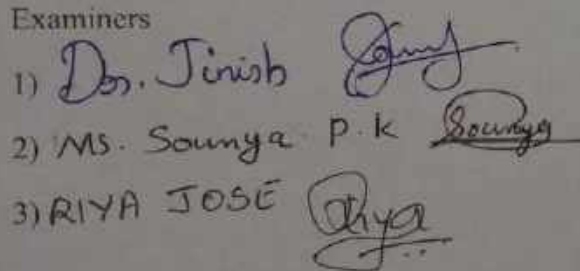 Examiners
1) Dr. Jinish
2) Ms. Soumya P.K Soumya
3) RIYA JOSE Riya